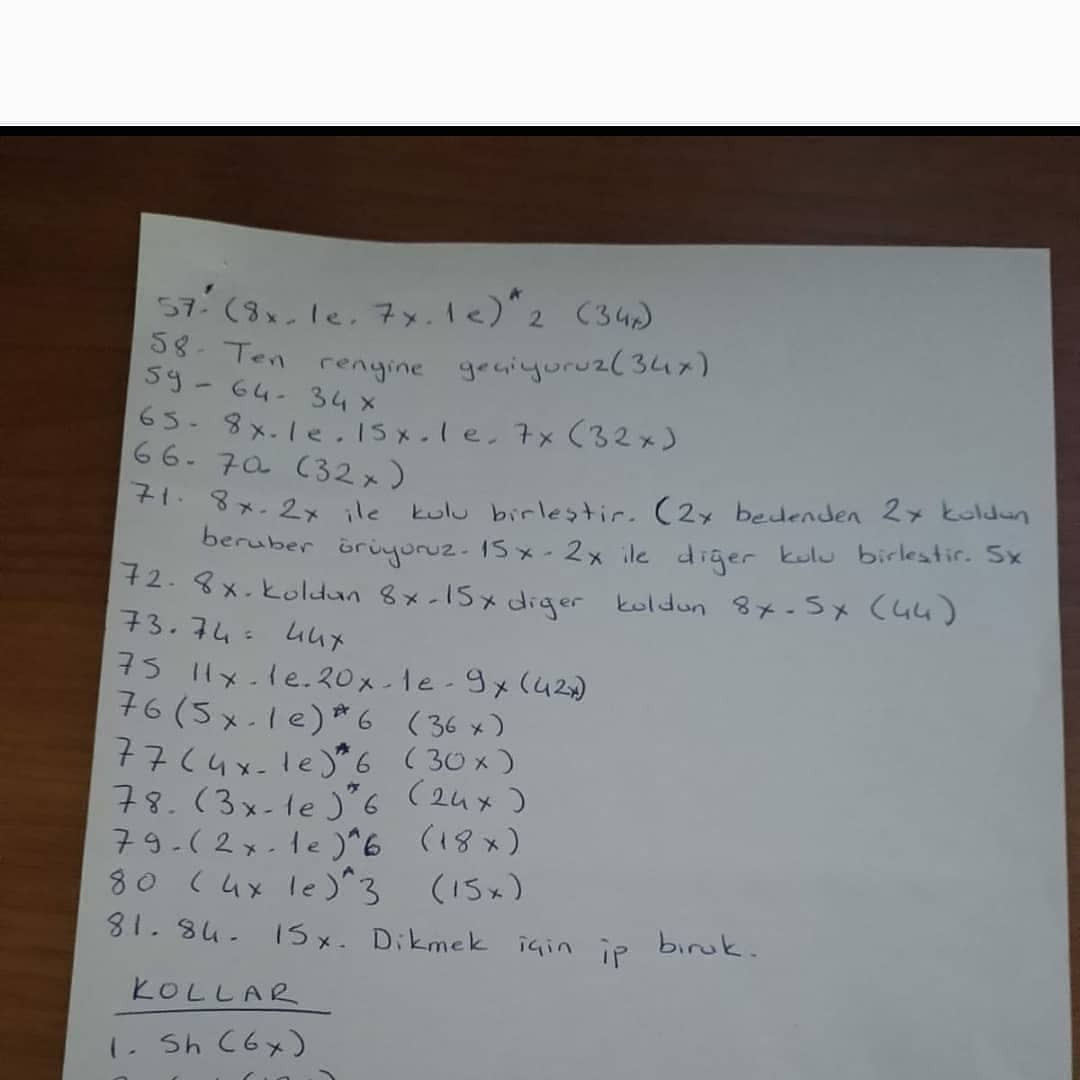 57. (8x. 1e. 7x. 1e)* 2 (34x)
58- Ten rengine geçiyoruz (34x)
59 - 64- 34x
65- 8x. 1e. 15x. 1e. 7x (32x)
66- 70 (32x)
71. 8x. 2x ile kolu birleştir. (2x bedenden 2x koldan
beraber örüyoruz. 15x - 2x ile diğer kolu birleştir. 5x
72. 8x. koldan 8x - 15x diğer koldan 8x - 5x (44)
73. 74 = 44x
75 11x. 1e. 20x. 1e - 9x (42x)
76 (5x. 1e)* 6 (36x)
77 (4x - 1e)* 6 (30x)
78. (3x - 1e)* 6 (24x)
79. (2x. 1e)* 6 (18x)
80 (4x 1e)* 3 (15x)
81. 84. 15x. Dikmek için ip bırak.
KOLLAR
1. Sh (6x)